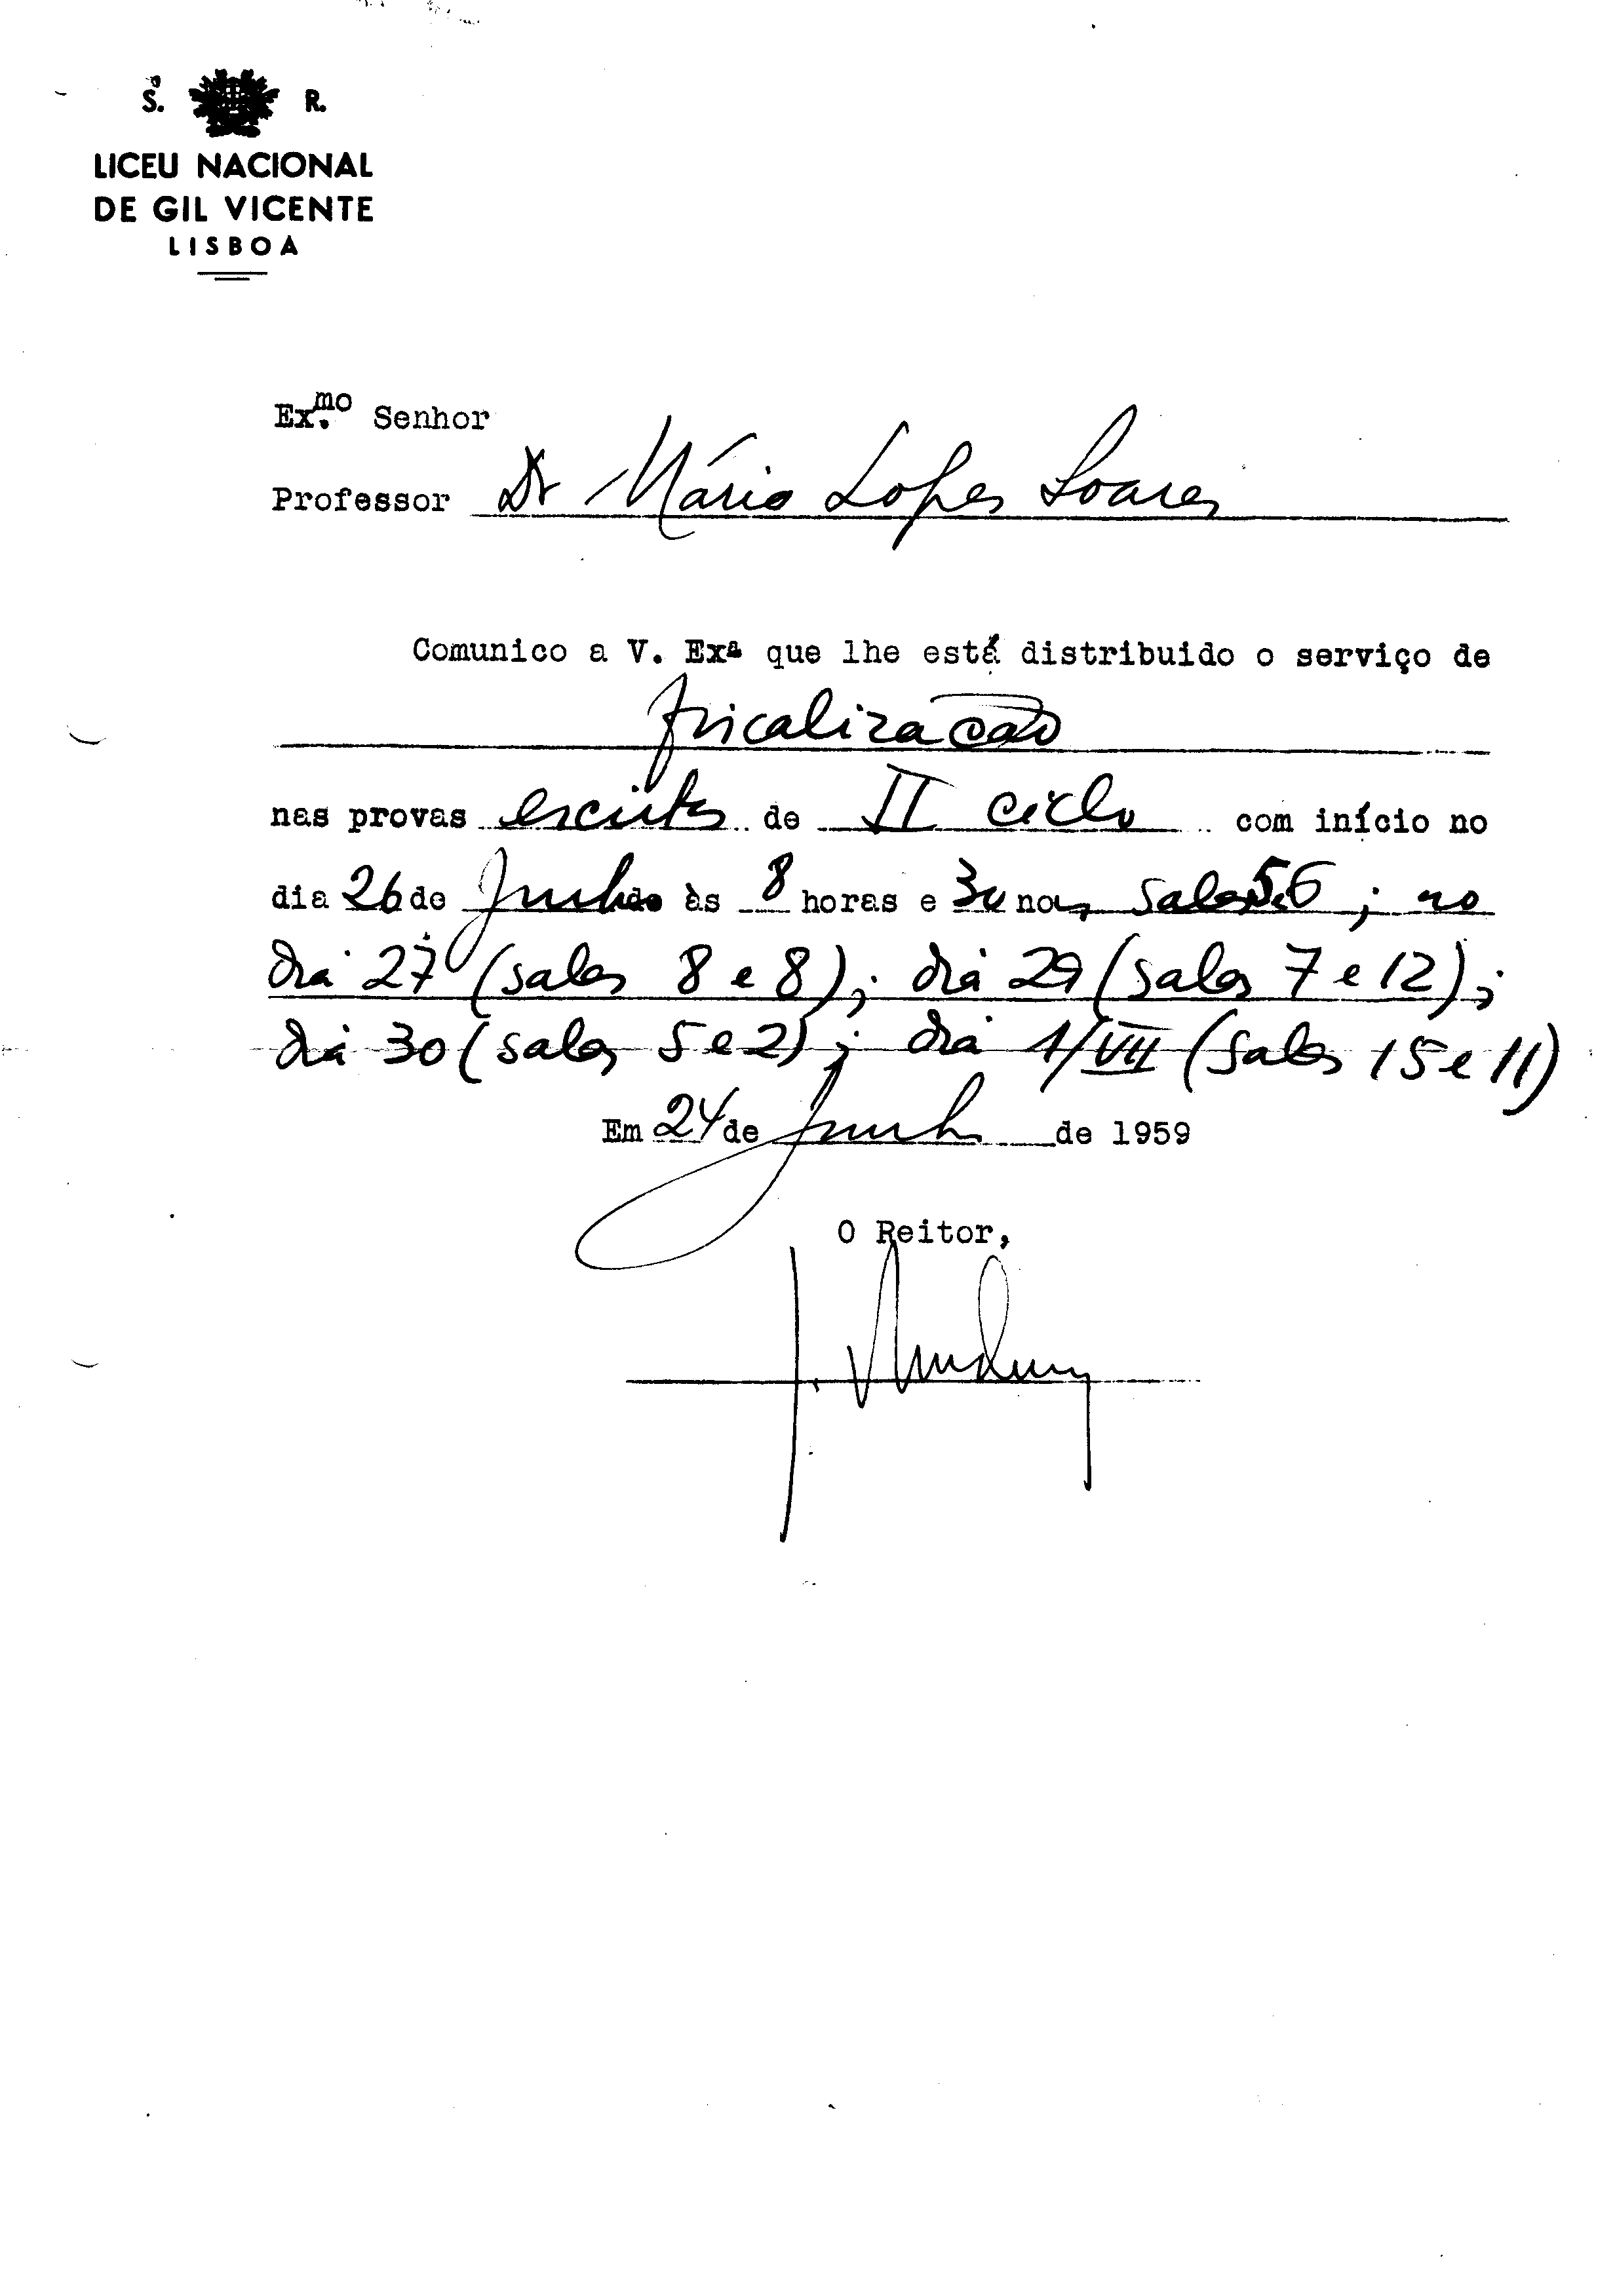 S. R.
LICEU NACIONAL
DE GIL VICENTE
LISBOA
Ex.mo Senhor
Professor Dr Mário Lopes Soares
Comunico a V. Exª que lhe está distribuido o serviço de
fiscalização
nas provas escritas de II ciclo com início no
dia 26 de Junho às 8 horas e 30 nas salas 5 e 6 ; no
dia 27 (salas 8 e 8); dia 29 (salas 7 e 12);
dia 30 (salas 5 e 2); dia 1/VII (salas 15 e 11)
Em 24 de Junho de 1959
O Reitor,